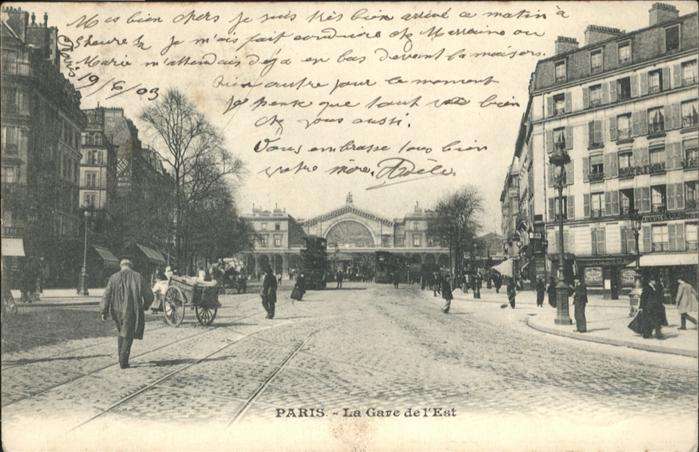 Paris
19/6 03
Mes bien chers je suis très bien arrivé ce matin à
5 heures ½ je m'ais fait conduire chez Marraine ou
Marie m'attendais déjà en bas devant la maison.
Rien autre pour le moment
je pense que tout va bien
chez vous aussi.
Vous embrasse tous bien
votre mère. Adèle.
PARIS. - La Gare de l'Est